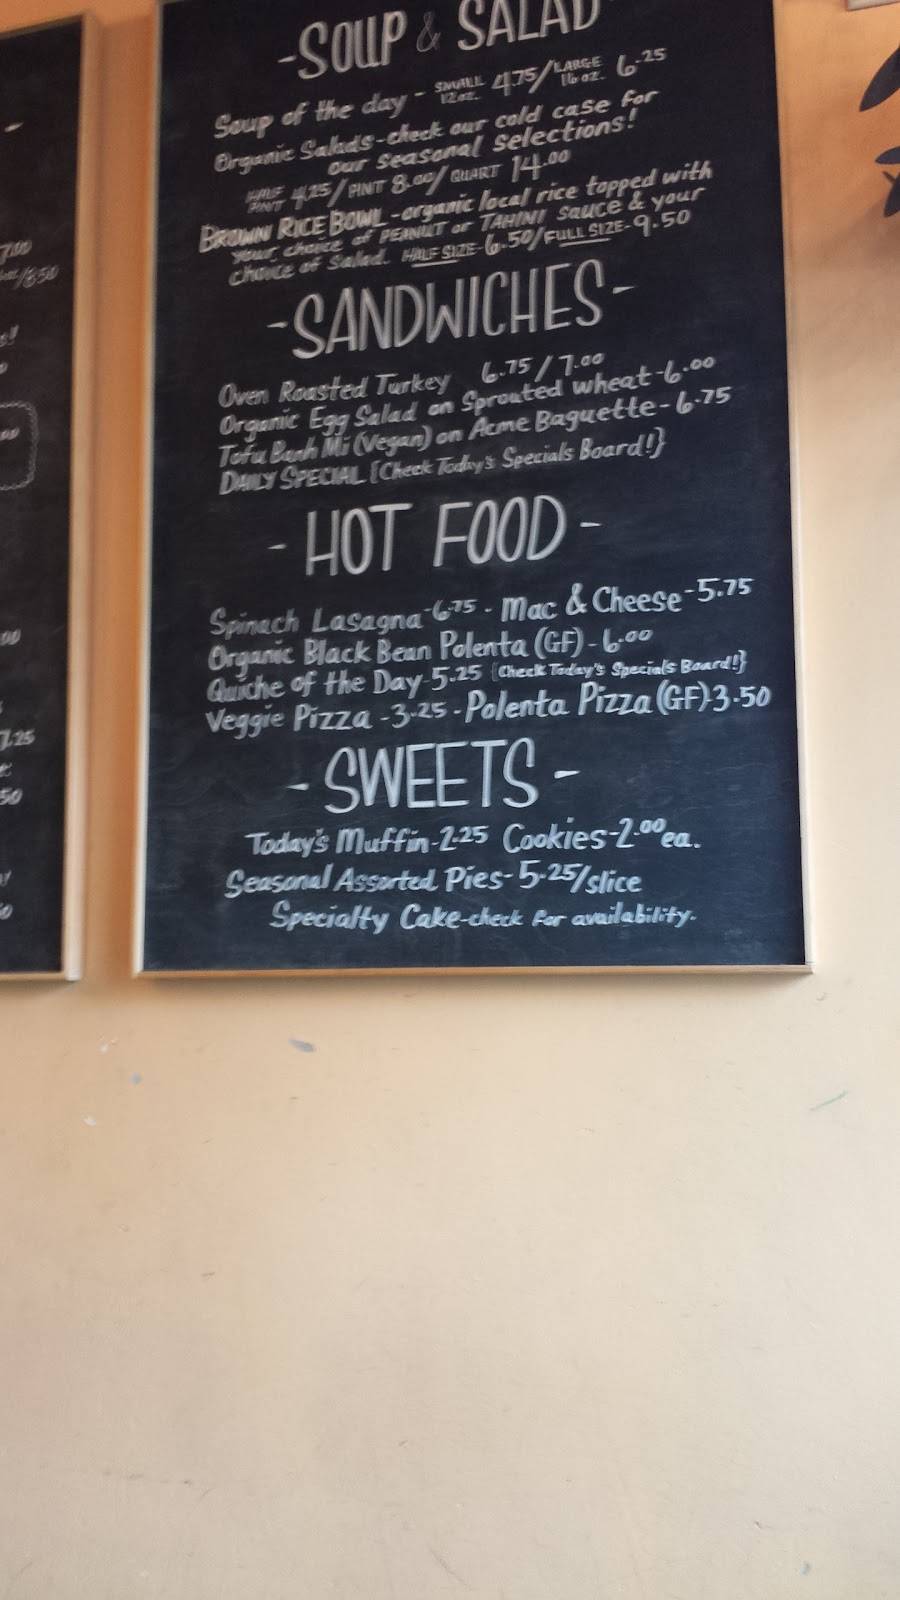 7.00
/8.50
7.25
50
-SOUP & SALAD
Soup of the day - SMALL 12oz. 4.75/LARGE 16oz. 6.25
Organic Salads-check our cold case for
our seasonal selections!
HALF PINT 4.25/PINT 8.00/QUART 14.00
BROWN RICE BOWL-organic local rice topped with
your choice of PEANUT or TAHINI sauce & your
choice of Salad. HALF SIZE-6.50/FULL SIZE-9.50
-SANDWICHES-
Oven Roasted Turkey 6.75/7.00
Organic Egg Salad on Sprouted wheat-6.00
Tofu Banh Mi (Vegan) on Acme Baguette-6.75
DAILY SPECIAL {Check Today's Specials Board!}
- HOT FOOD -
Spinach Lasagna-6.75 - Mac & Cheese-5.75
Organic Black Bean Polenta (GF)-6.00
Quiche of the Day-5.25 {Check Today's Specials Board!}
Veggie Pizza -3.25 - Polenta Pizza (GF)-3.50
- SWEETS -
Today's Muffin-2.25 Cookies-2.00 ea.
Seasonal Assorted Pies-5.25/slice
Specialty Cake-check for availability.